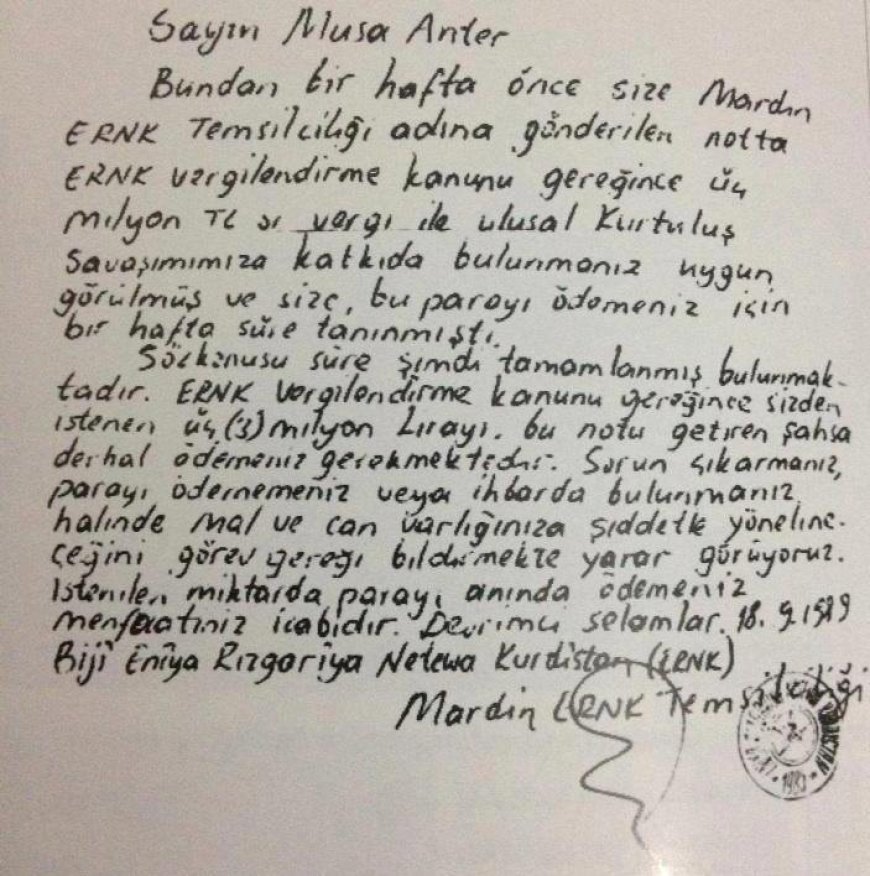 Sayın Musa Anter
Bundan bir hafta önce size Mardin
ERNK Temsilciliği adına gönderilen notta
ERNK vergilendirme kanunu gereğince üç
milyon TL sı vergi ile ulusal Kurtuluş
Savaşımımıza katkıda bulunmanız uygun
görülmüş ve size, bu parayı ödemeniz için
bir hafta süre tanınmıştı.
Sözkonusu süre şimdi tamamlanmış bulunmak-
tadır. ERNK vergilendirme kanunu gereğince sizden
istenen üç (3) milyon Lirayı. bu notu getiren şahsa
derhal ödemeniz gerekmektedir. Sorun çıkarmanız,
parayı ödememeniz veya ihbarda bulunmanız
halinde mal ve can varlığınıza şiddetle yöneline-
ceğini görev gereği bildirmekte yarar görüyoruz.
İstenilen miktarda parayı anında ödemeniz
menfaatiniz icabıdır. Devrimci selamlar. 18. 9. 1989
Biji Eniya Rızgariya Netewa Kurdistan (ERNK)
Mardin ERNK Temsilciliği